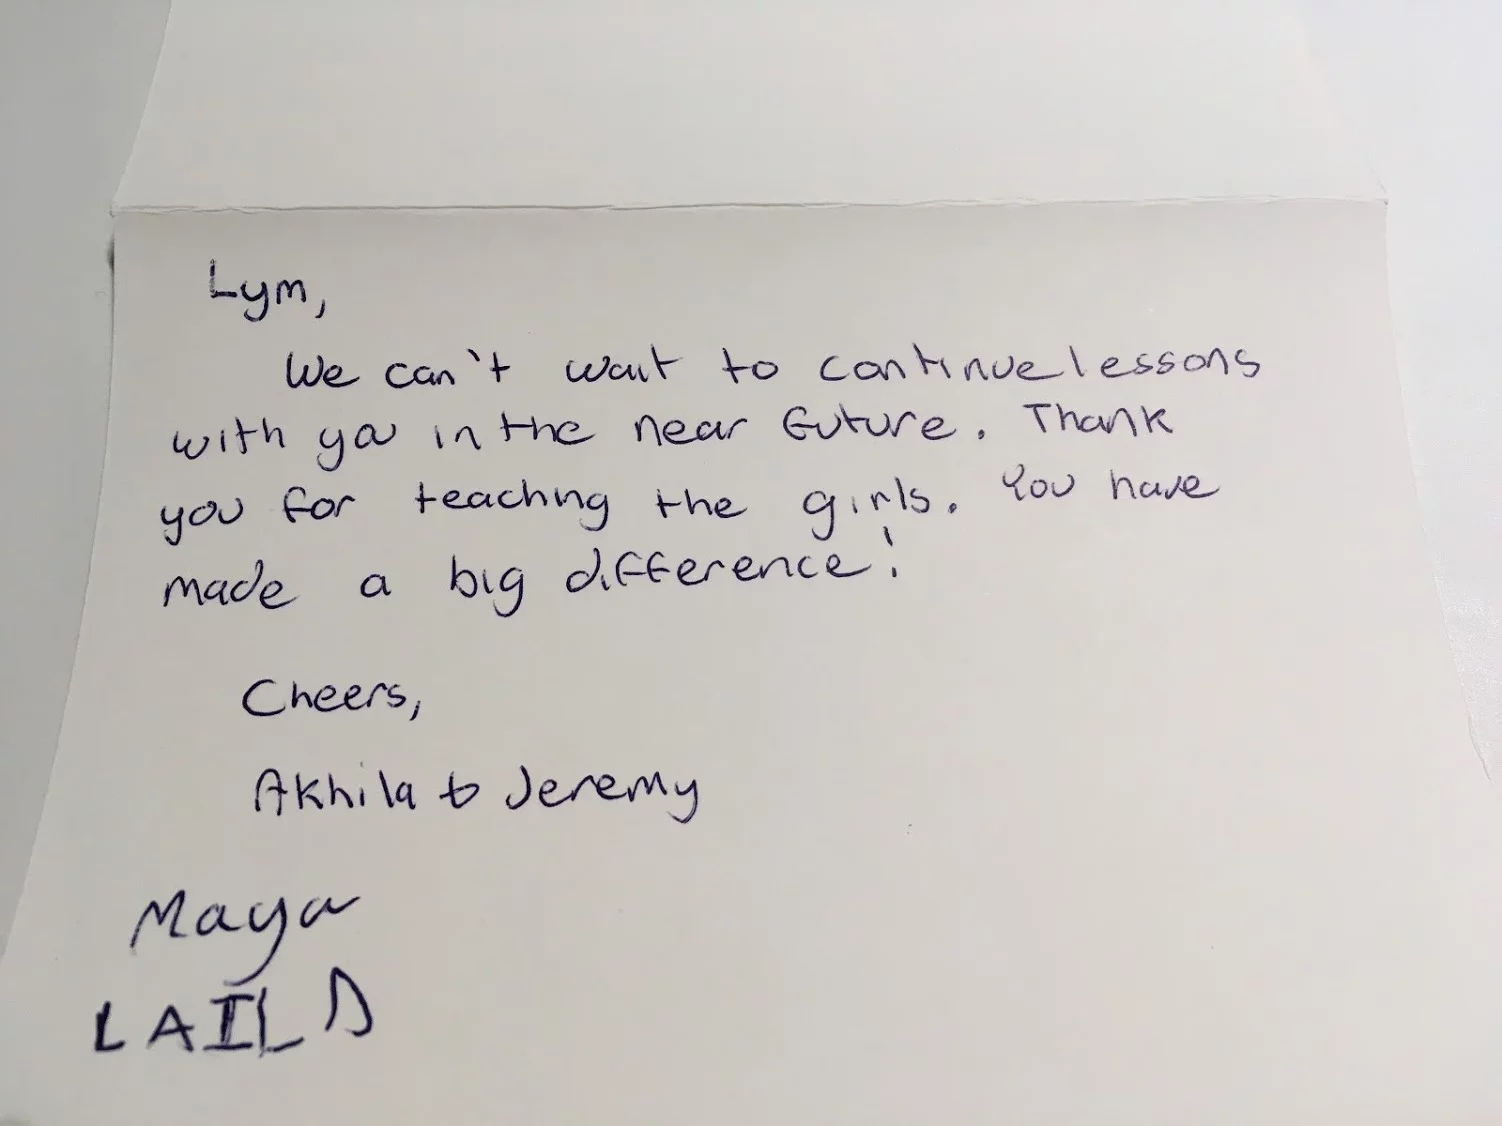 Lym,
We can't wait to continue lessons
with you in the near future. Thank
you for teaching the girls. You have
made a big difference!
Cheers,
Akhila & Jeremy
Maya
LAILA